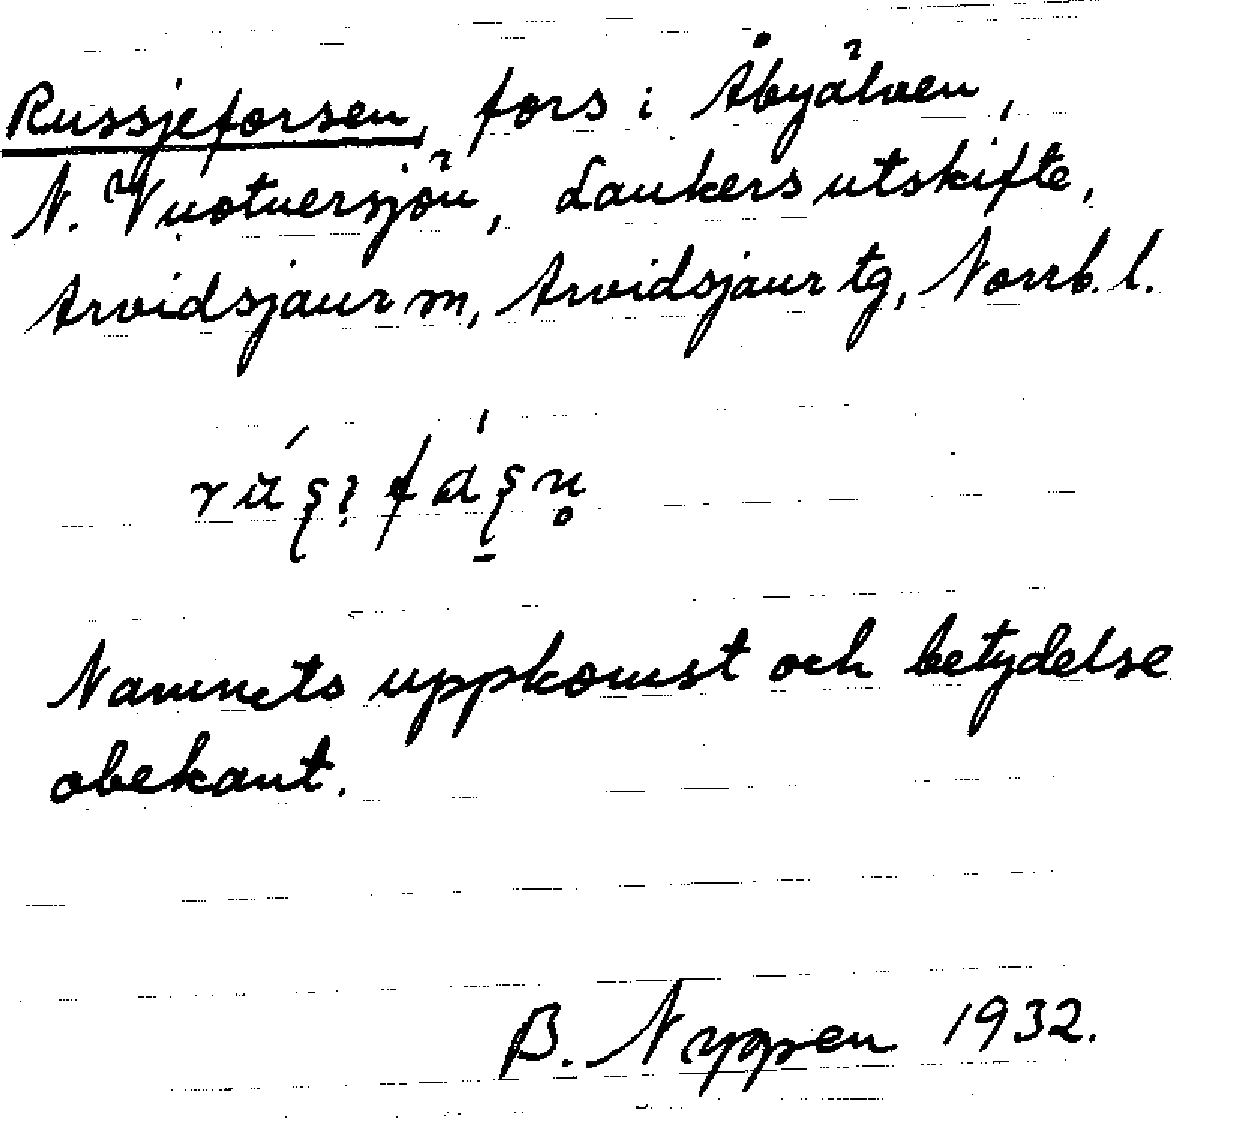 Russjeforsen, fors i Åbyälven,
N. Vuotnersjön, Laukers utskifte,
Arvidsjaur m, Arvidsjaur tg, Norrb. l.
Namnets uppkomst och betydelse
obekant.
B. Nyppen 1932.